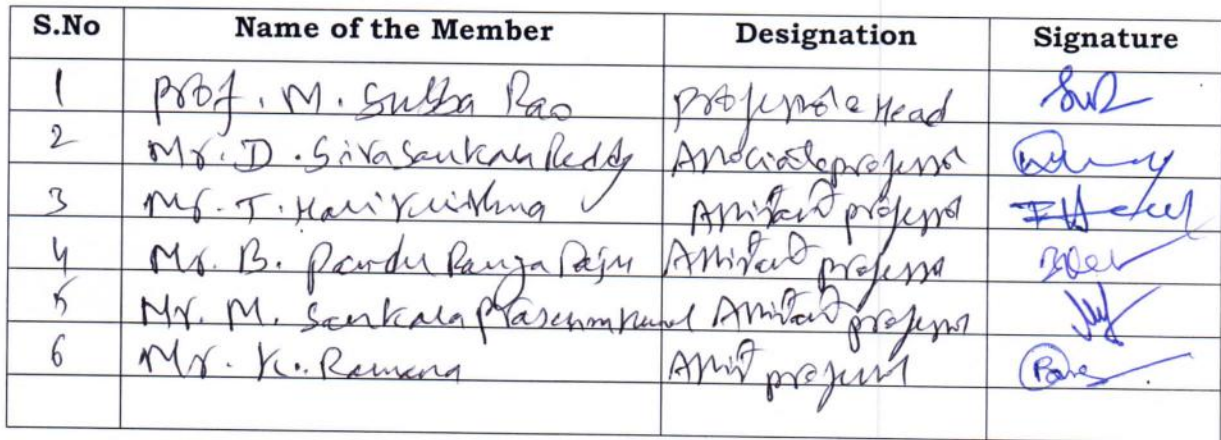 S.No Name of the Member Designation Signature
1 Prof. M. Subba Rao Professor & Head
2 Mr. D. Siva Sankara Reddy Associate professor
3 Mr. T. Hari Krishna Assistant professor
4 Mr. B. Pandu Ranga Raju Assistant professor
5 Mr. M. Sankara Prasanna Kumar Assistant professor
6 Mr. K. Ramana Assist professor